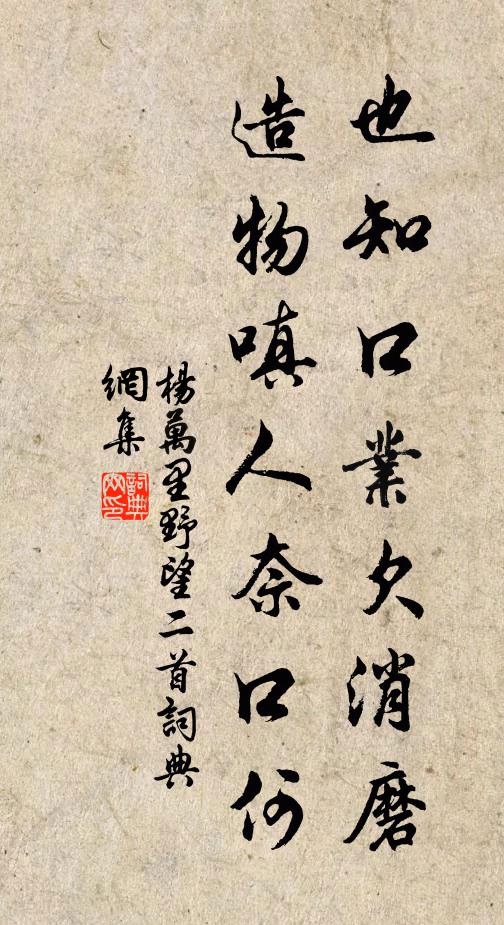 也知口業欠消磨
造物嗔人奈口何
楊萬里野望二首詞典
網集
詞典
网印